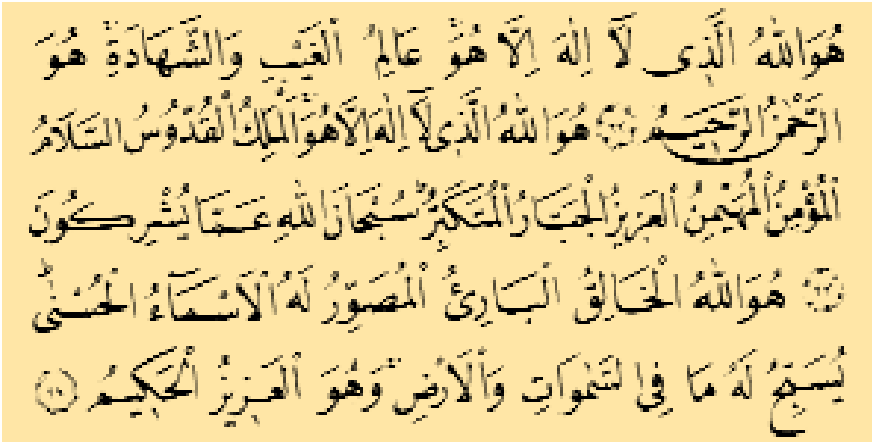 هُوَاللّٰهُ الَّذٖى لَٓا اِلٰهَ اِلَّا هُوَۚ عَالِمُ الْغَيْبِ وَالشَّهَادَةِۚ هُوَ
الرَّحْمٰنُ الرَّحٖيمُ ﴿٢٢﴾ هُوَاللّٰهُ الَّذٖى لَٓا اِلٰهَ اِلَّا هُوَۚ اَلْمَلِكُ الْقُدُّوسُ السَّلَامُ
الْمُؤْمِنُ الْمُهَيْمِنُ الْعَزٖيزُ الْجَبَّارُ الْمُتَكَبِّرُؕ سُبْحَانَ اللّٰهِ عَمَّا يُشْرِكُونَ
﴿٢٣﴾ هُوَاللّٰهُ الْخَالِقُ الْبَارِئُ الْمُصَوِّرُ لَهُ الْاَسْمَٓاءُ الْحُسْنٰىؕ
يُسَبِّحُ لَهُ مَا فِى السَّمٰوَاتِ وَالْاَرْضِۚ وَهُوَ الْعَزٖيزُ الْحَكٖيمُ